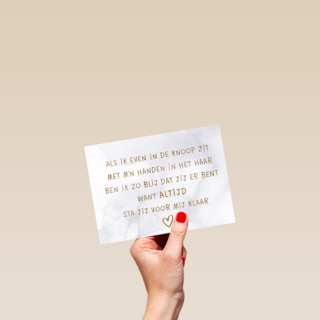 ALS IK EVEN IN DE KNOOP ZIT
MET M'N HANDEN IN HET HAAR
BEN IK ZO BLIJ DAT JIJ ER BENT
WANT ALTIJD
STA JIJ VOOR MIJ KLAAR